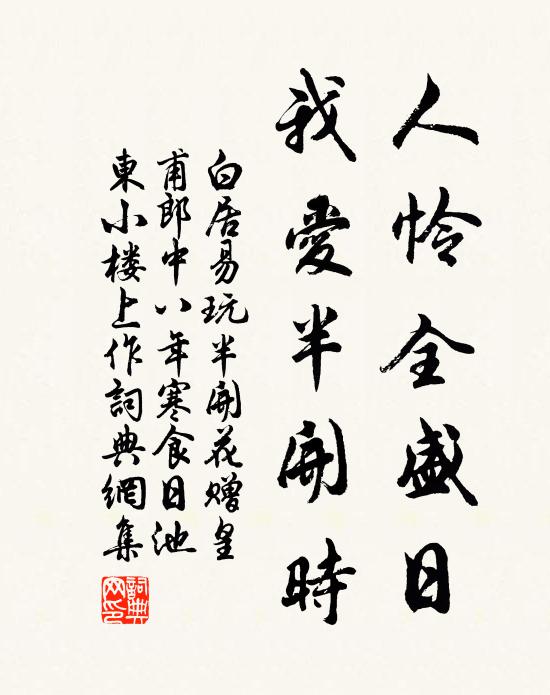 人怜全盛日
我愛半開時
白居易玩半開花赠皇
甫郎中八年寒食日池
東小楼上作詞典網集
詞典
网印